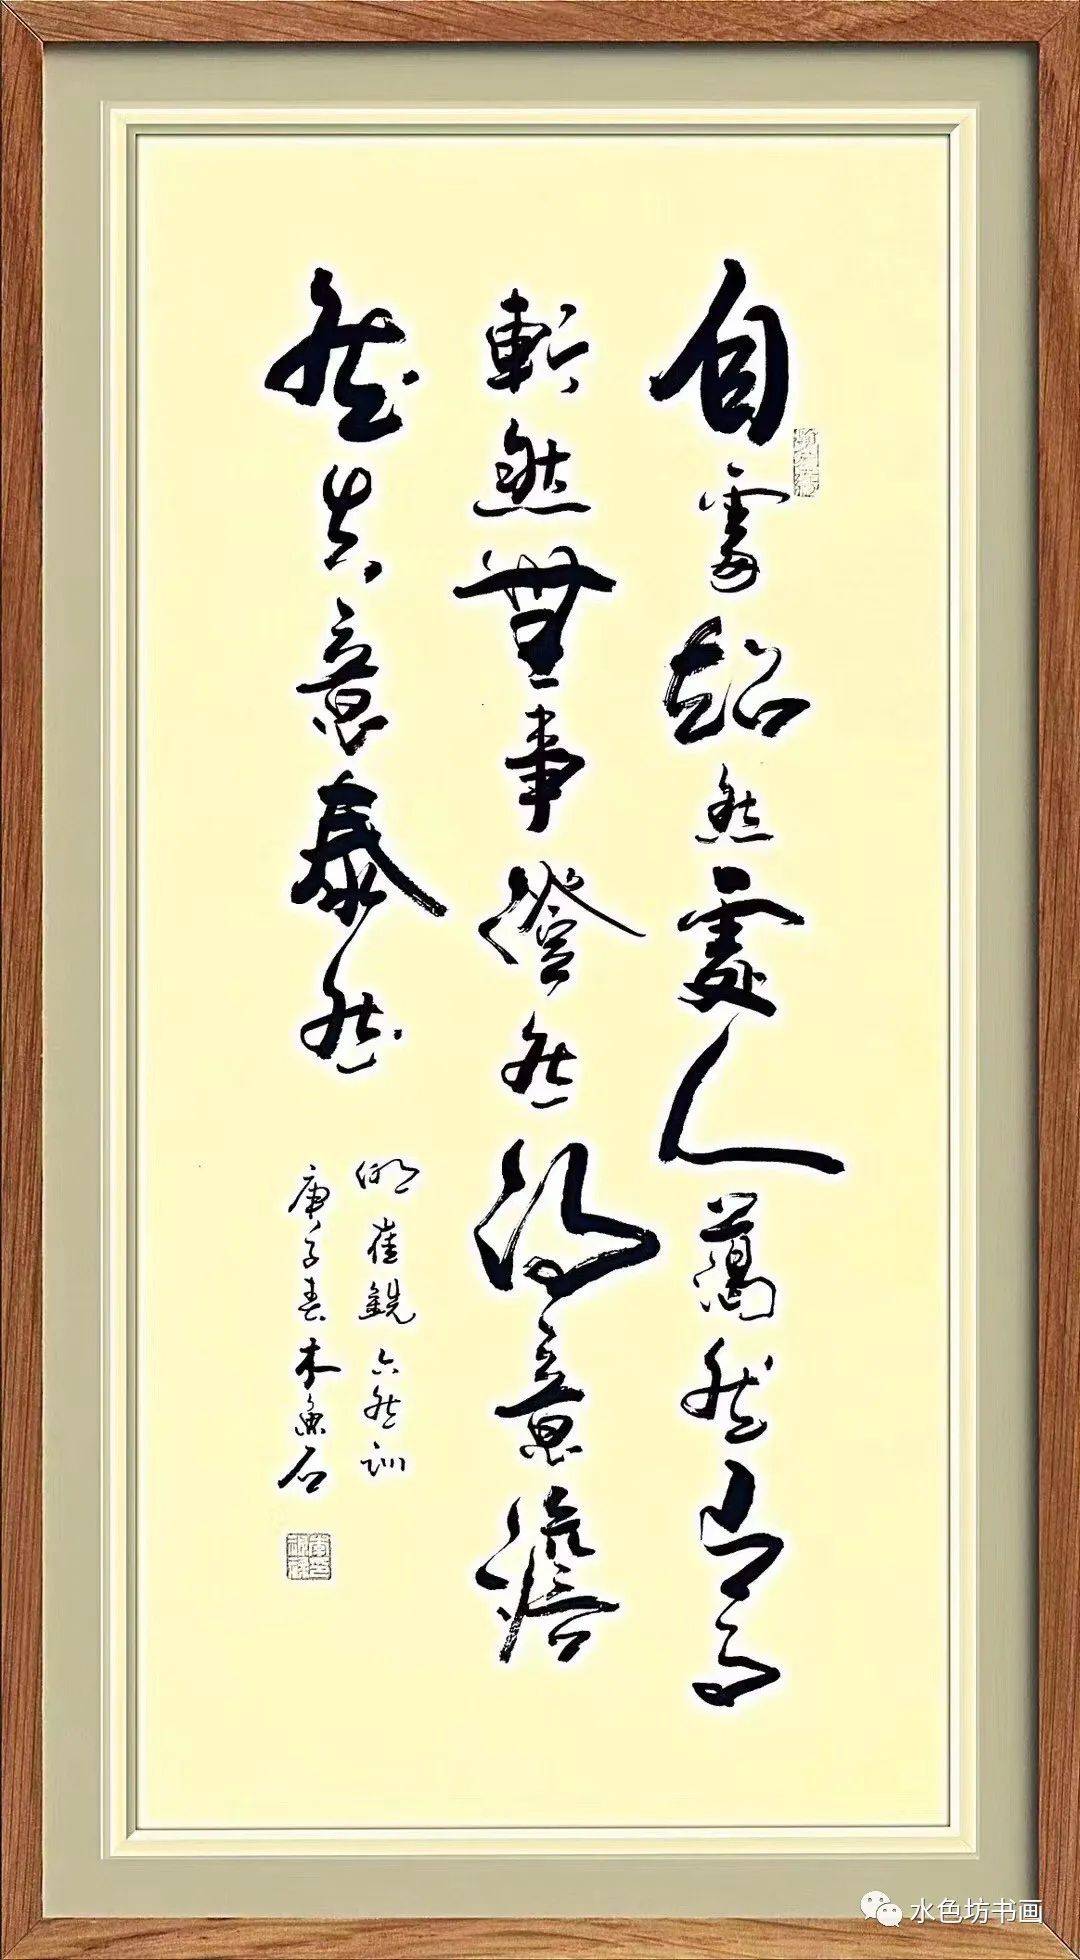 自處超然處人藹然有事
斬然無事澄然得意澹
然失意泰然
明崔銑六然訓
庚子春木魚石
水色坊书画